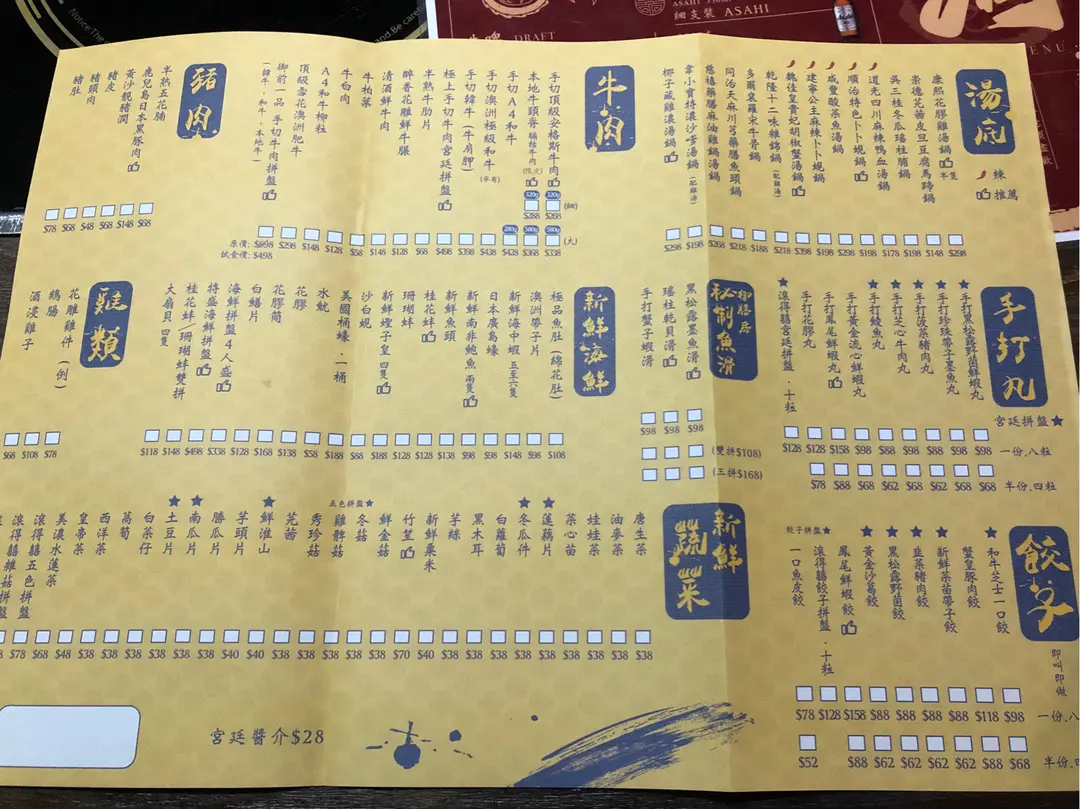 DRAFT
ASAHI
細支裝 ASAHI
MENU
湯底
辣
推薦
康熙花膠雞湯鍋 半隻
崇德芫茜皮旦豆腐馬蹄鍋
吳三桂冬瓜瑤柱脯鍋
道光四川麻辣鴨血湯鍋
順治特色卜卜蜆鍋
咸豐酸菜魚湯鍋
建寧公主麻辣卜卜蜆鍋
魏佳皇貴妃胡椒蟹湯鍋
乾隆十二味雜錦鍋(配雞湯)
多爾袞羅宋牛骨鍋
同治天麻川芎藥膳魚頭鍋
慈禧藥膳麻油雞鍋湯鍋
韋小寶特濃沙爹湯鍋(配雞湯)
椰子葳雞濃湯鍋
$298 $198 $268 $218 $188 $218 $398 $298 $198 $198 $178 $198 $148 $298
牛肉
手切頂級安格斯牛肉
本地牛頸脊 (限定)
手切A4和牛
手切澳洲極級和牛
手切韓牛(牛肩胛)
極上手切牛肉宮廷拼盤
半熟牛肋片
醉香花雕鮮牛脹
清酒鮮牛肉
牛柏葉
牛白肉
A4和牛柳粒
頂級雪花澳洲肥牛
御前一品．手切牛肉拼盤
(韓牛．和牛．本地牛)
320g 320g (細)
$288 $268
280g 580g 580g (大)
原價: $698 $298 $148 $128 $58 $148 $128 $68 $498 $398 $438 $428 $368 $338
試食價: $498
豬肉
半熟五花腩
鹿兒島日本黑豚肉
黃沙靚豬潤
豬皮
豬頸肉
豬肚
$78 $68 $48 $68 $148 $68
手打丸
宮廷拼盤★
手打黑松露野菌鮮蝦丸
手打珍珠帶子墨魚丸
手打菠菜豬肉丸
手打芝心牛肉丸
手打鯪魚丸
手打黃金流心鮮蝦丸
手打鳳尾鮮蝦丸
手打花膠丸
滾得囍宮廷拼盤．十粒
$128 $128 $158 $98 $88 $88 $98 $98 $98 一份．八粒
$78 $88 $68 $62 $68 $62 $68 $68 半份．四粒
御膳房
秘制魚滑
黑松露墨魚滑
瑤柱乾貝滑
手打蟹子蝦滑
$98 $98 $98
(雙拼$108)
(三拼$168)
新鮮海鮮
極品魚肚(綿花肚)
澳洲帶子片
新鮮海中蝦 五至六隻
日本廣島蠔
新鮮南非鮑魚 兩隻
新鮮魚頭
桂花蚌
珊瑚蚌
新鮮蟶子皇 四隻
沙白蜆
美國桶蠔．一桶
水魷
花膠
花膠筒
白鱔片
海鮮拼盤4人盛
特盛海鮮拼盤
桂花蚌/珊瑚蚌雙拼
大扇貝 四隻
$118 $148 $498 $338 $128 $168 $138 $58 $188 $88 $188 $128 $128 $138 $98 $98 $148 $98 $108
雞類
花雕雞件(例)
鴨腸
酒浸雞子
$68 $108 $78
餃子
即叫即做
餃子拼盤★
和牛芝士一口餃
蟹皇豚肉餃
新鮮菜苗帶子餃
韮菜豬肉餃
黑松露野菌餃
黃金沙葛餃
鳳尾鮮蝦餃
滾得囍餃子拼盤．十粒
一口魚皮餃
$78 $128 $158 $88 $88 $88 $88 $118 $98 一份．八
$52 $88 $62 $62 $62 $62 $88 $68 半份．四
新鮮蔬菜
唐生菜
油麥菜
娃娃菜
菜心苗
蓮藕片
冬瓜件
白蘿蔔
黑木耳
芋絲
新鮮粟米
竹笙
鮮金菇
冬菇
雞髀菇
五色拼盤★
秀珍菇
芫茜
鮮淮山
芋頭片
勝瓜片
南瓜片
土豆片
白菜仔
萵筍
西洋菜
皇帝菜
美濃水蓮菜
滾得囍五色拼盤
滾得囍雜菇拼盤
$78 $68 $48 $38 $38 $38 $38 $38 $40 $40 $38 $38 $38 $38 $38 $38 $70 $40 $38 $38 $38 $38 $38 $38 $38 $38 $38
宮廷醬介$28